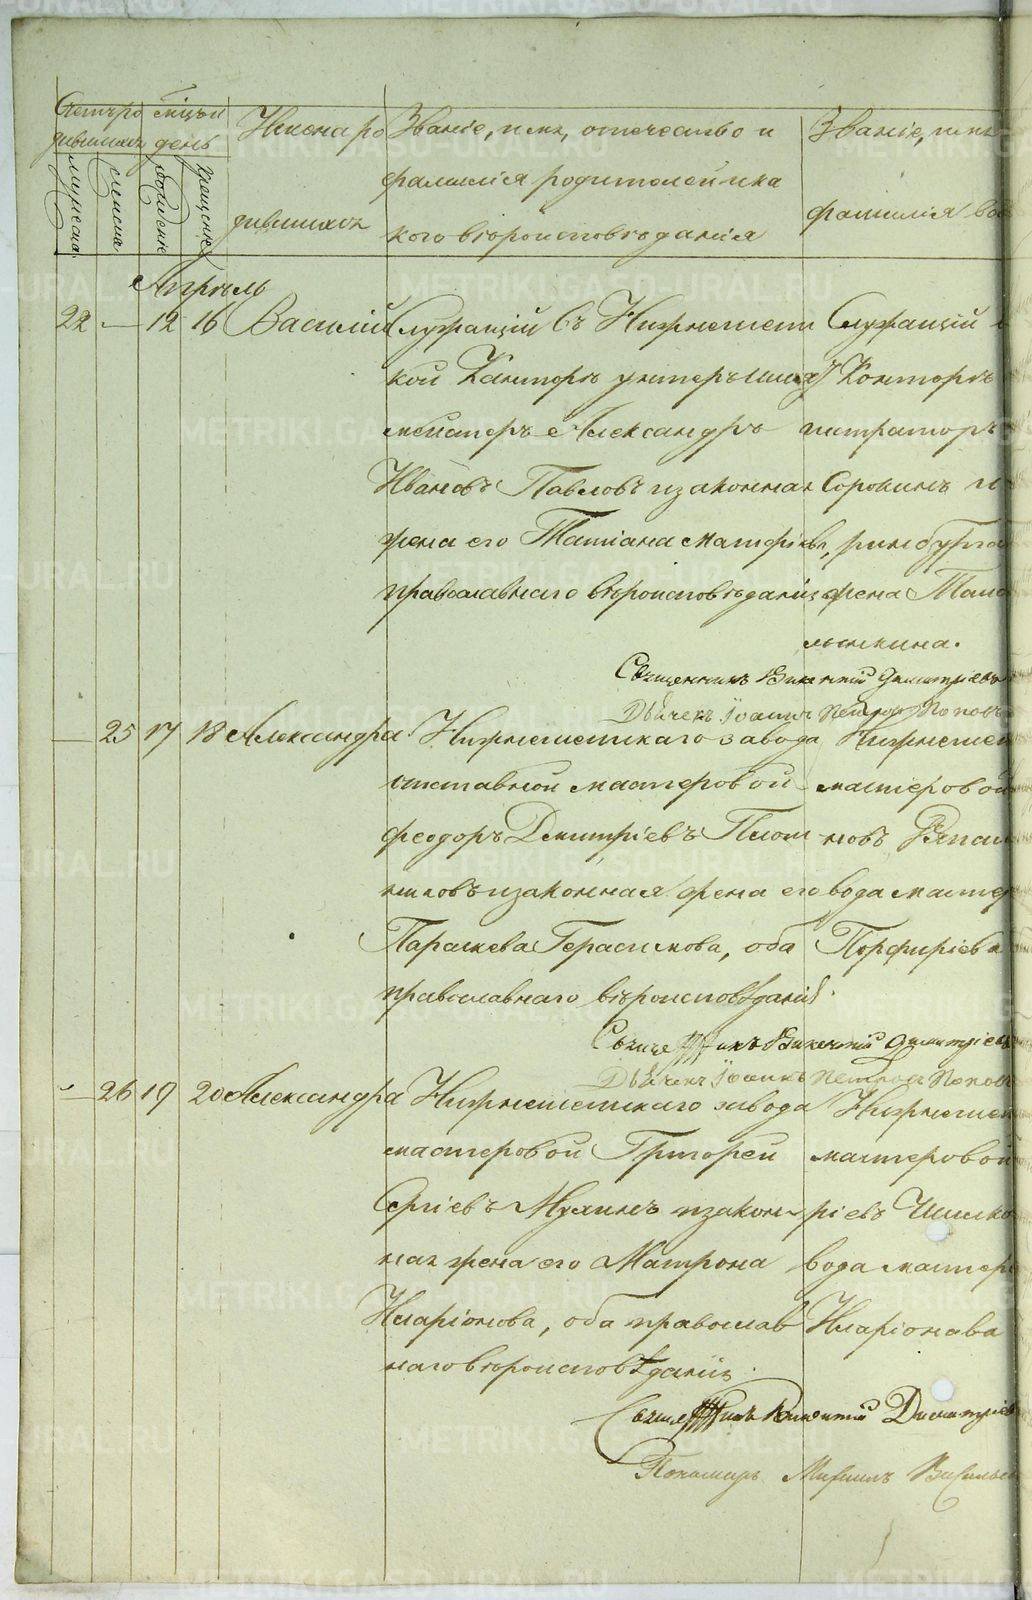 Счетъ ро
дившихся
мужеска
женска
Мѣсяцъ и
день
рожденія
крещенія
Имена ро
дившихся
Званіе, имя, отчество и
фамилія родителей и ка
кого вѣроисповѣданія
Званіе, имя
фамилія во
Апрѣль
22 — 12 16 Василій
Служащій въ Нижнешетин
ской Канторѣ унтеръ-ших
мейстеръ Александръ
Ивановъ Павловъ и законная
жена его Татіана Матфіева,
православнаго вѣроисповѣданія
Служащій
Конторѣ
истраторъ
Сорокинъ и
ринбурга
жена Тать
лынкина.
Священникъ Викентій Димитріевъ
Дьячекъ Іоаннъ Петровъ Поповъ
— 25 17 18 Александра
Нижнешетскаго завода
отставной мастеровой
Феодоръ Димитріевъ Плот
никовъ и законная жена его
Параскева Герасимова, оба
православнаго вѣроисповѣданія.
Нижнешет
мастеровой
новъ
вода мастер
Порфиріева
Священникъ Викентій Димитріевъ
Дьячекъ Іоаннъ Петровъ Поповъ
— 26 19 20 Александра
Нижнешетскаго завода
мастеровой Григорей
Сергіевъ Мухинъ и закон
ная жена его Матрона
Иларіонова, оба православ
наго вѣроисповѣданія.
Нижнешет
мастеровой
ріевъ
вода мастер
Иларіонова
Священникъ Викентій Димитріев
Пономарь Михаилъ Васильев
METRIKI.GASO-URAL.RU